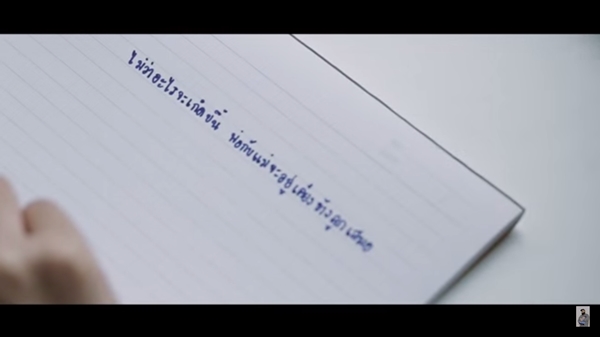 ไม่ว่าอะไรจะเกิดขึ้น พ่อกับแม่จะอยู่เคียงข้างลูกเสมอ